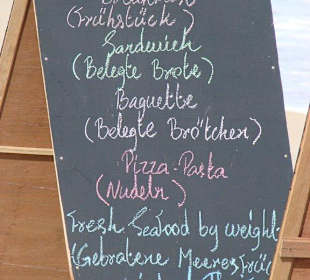 (Frühstück)
Sandwich
(Belegte Brote)
Baguette
(Belegte Brötchen)
Pizza-Pasta
(Nudeln)
Fresh Seafood by weight
(Gebratene Meeresfrüc